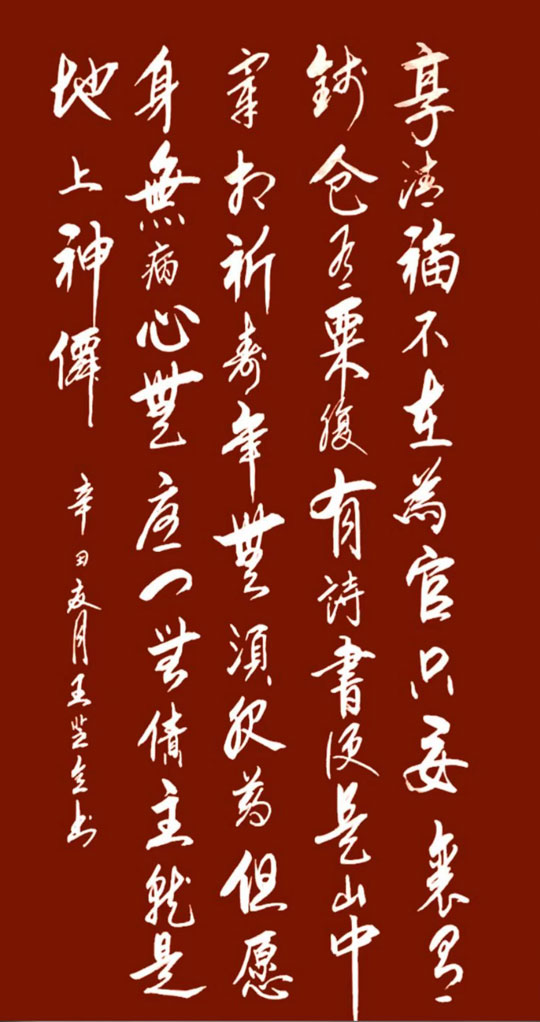 享清福不在為官只要囊有
錢仓有粟腹有詩書便是山中
宰相祈壽年無須服药但愿
身無病心無憂门無債主就是
地上神僊
辛丑夏月王芝书